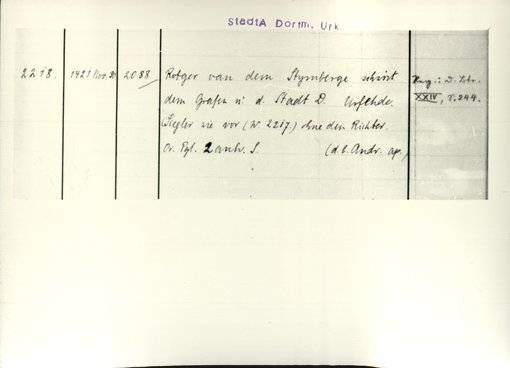 StadtA Dortm. Urk
2218. 1421 Nov. 30 2088 Rotger van dem Stymberge schwört
dem Grafen u. d. Stadt D. Urfehde.
Siegler wie vor (N. 2217.) ohne den Richter.
Or. Pgt. 2 anh. S. (d. b. Andr. ap.)
XXIV, S. 244.